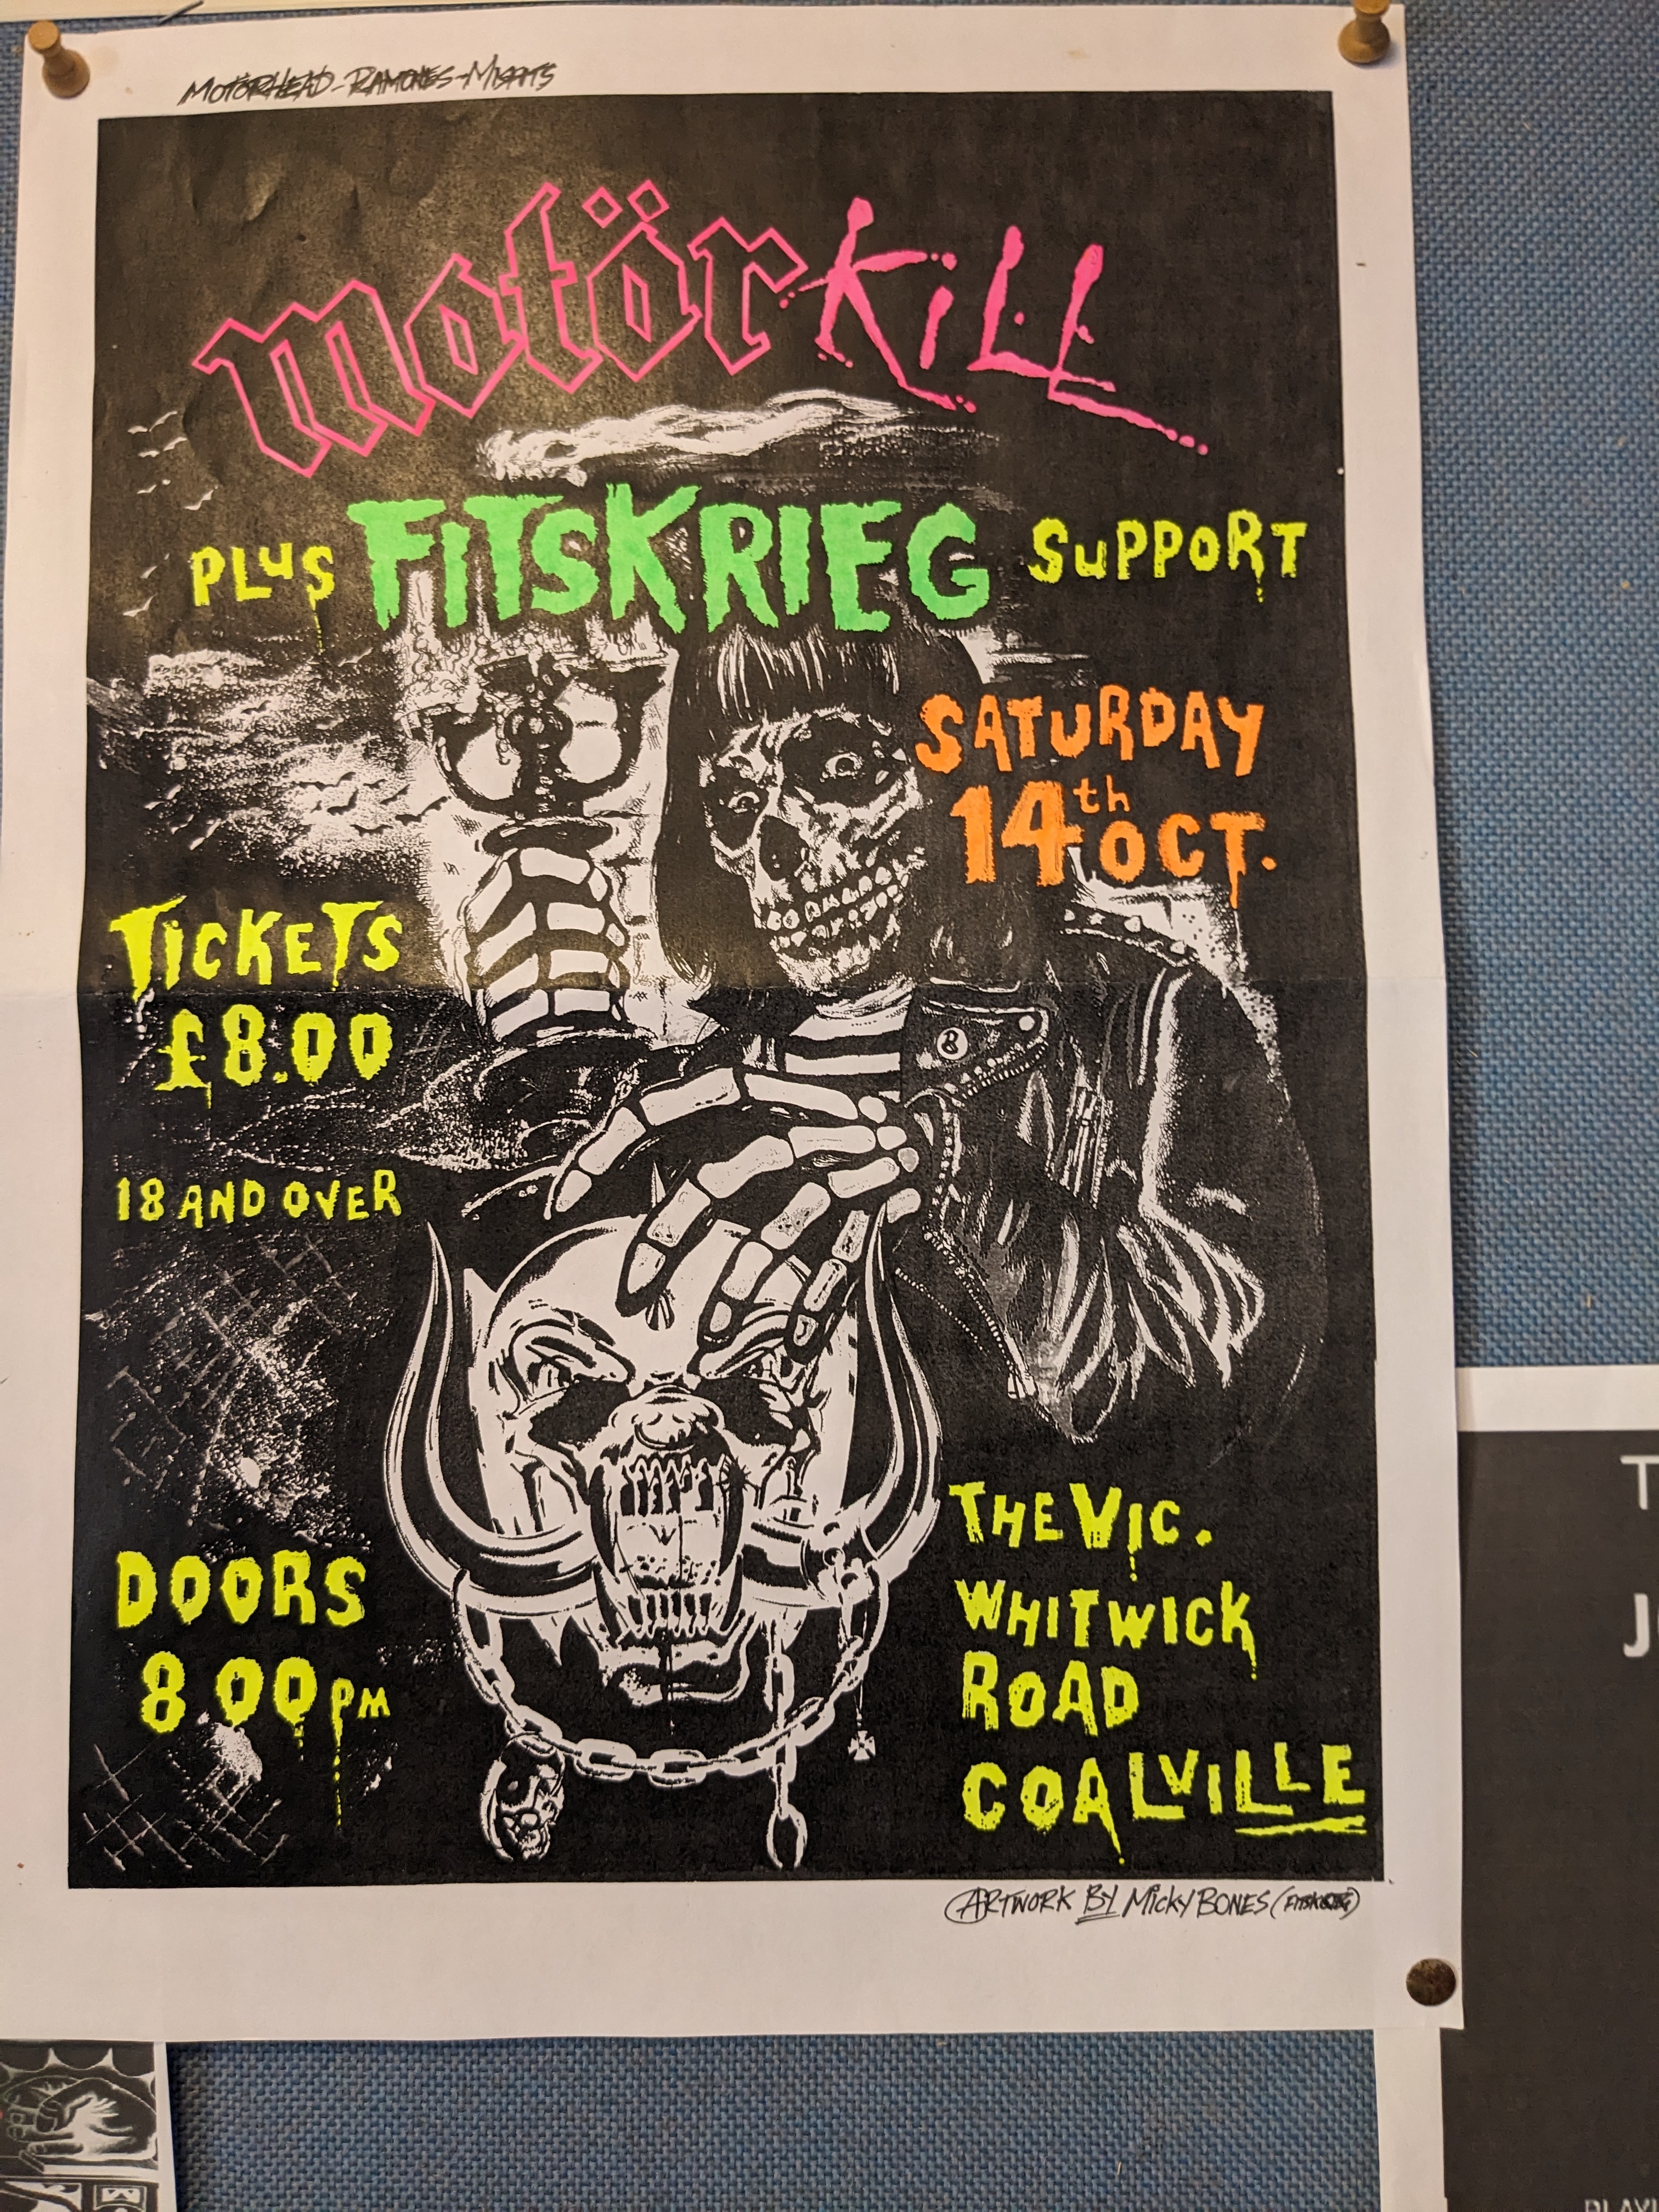 MOTÖRHEAD-RAMONES-MISFITS
motörkill
PLUS FITSKRIEG SUPPORT
SATURDAY
14th OCT.
TICKETS
£8.00
18 AND OVER
DOORS
8 00 PM
THE VIC.
WHITWICK
ROAD
COALVILLE
ARTWORK BY MICKY BONES (FITSKRIEG)
T